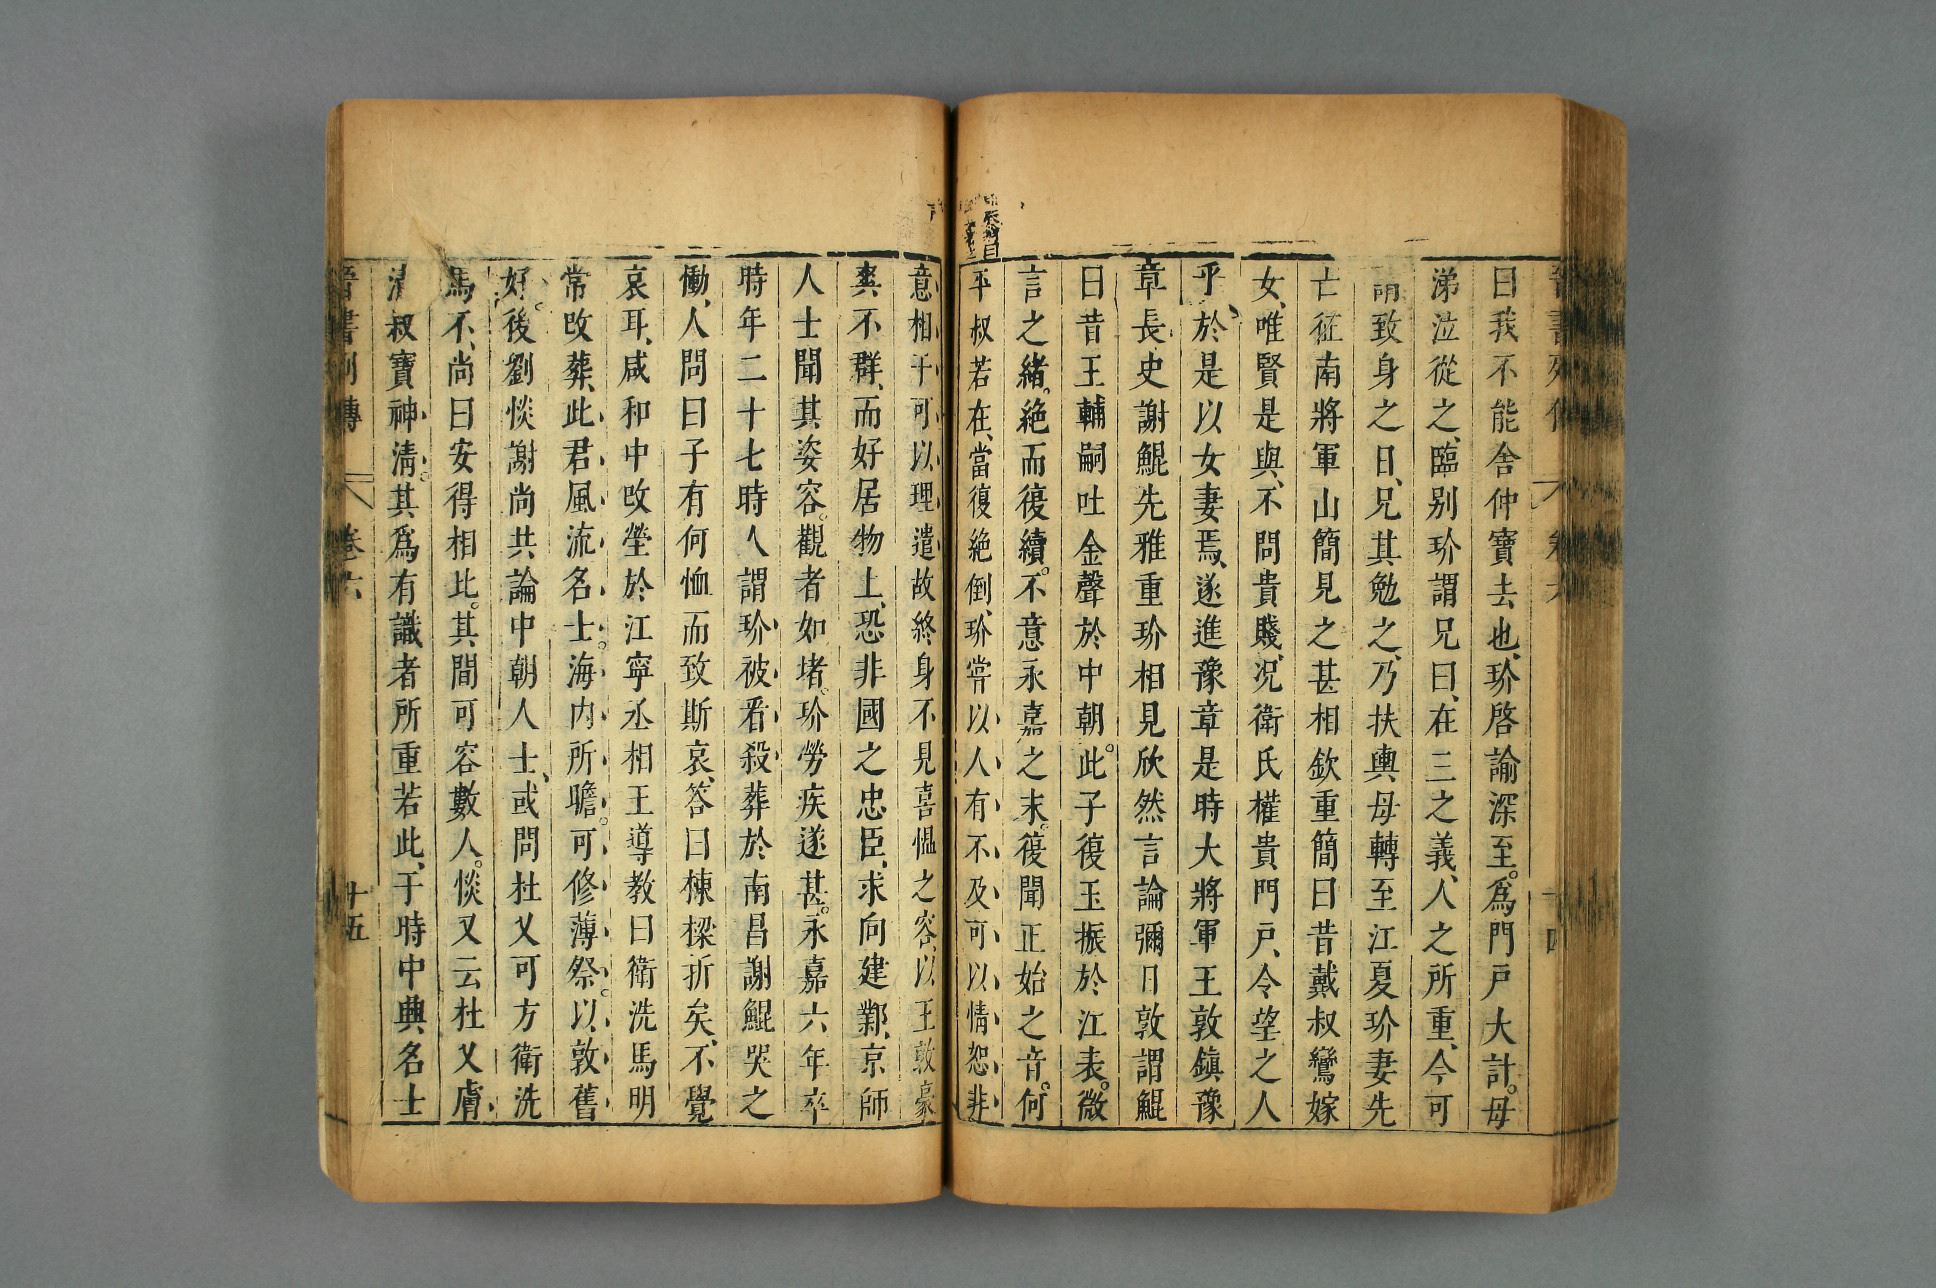 曰我不能舍仲寶去也、玠啓諭深至。爲門戶大計。母
涕泣從之、臨别玠謂兄曰、在三之義、人之所重、今可
謂致身之日、兄其勉之、乃扶輿母轉至江夏玠妻先
亡征南將軍山簡見之甚相欽重簡曰昔戴叔鸞嫁
女、唯賢是與、不問貴賤、况衛氏權貴門戶、令望之人
乎、於是以女妻焉、遂進豫章是時大將軍王敦鎮豫
章長史謝鯤先雅重玠相見欣然言論彌日敦謂鯤
曰昔王輔嗣吐金聲於中朝。此子復玉振於江表。微
言之緒。絶而復續。不意永嘉之末。復聞正始之音。何
平叔若在、當復絶倒、玠嘗以人有不及可以情恕非
意相干可以理遣故終身不見喜愠之容、以王敦豪
爽不群、而好居物上、恐非國之忠臣、求向建鄴、京師
人士聞其姿容。觀者如堵。玠勞疾遂甚。永嘉六年卒
時年二十七時人謂玠被看殺葬於南昌謝鯤哭之
慟、人問曰子有何恤而致斯哀、答曰棟樑折矣、不覺
哀耳、咸和中改塋於江寧丞相王導教曰衛洗馬明
常改葬、此君風流名士。海内所瞻。可修薄祭。以敦舊
好。後劉惔謝尚共論中朝人士、或問杜乂可方衛洗
馬不、尚曰安得相比。其間可容數人。惔又云杜乂膚
清叔寶神清。其爲有識者所重若此、于時中興名士
晉書列傳 卷六 十五